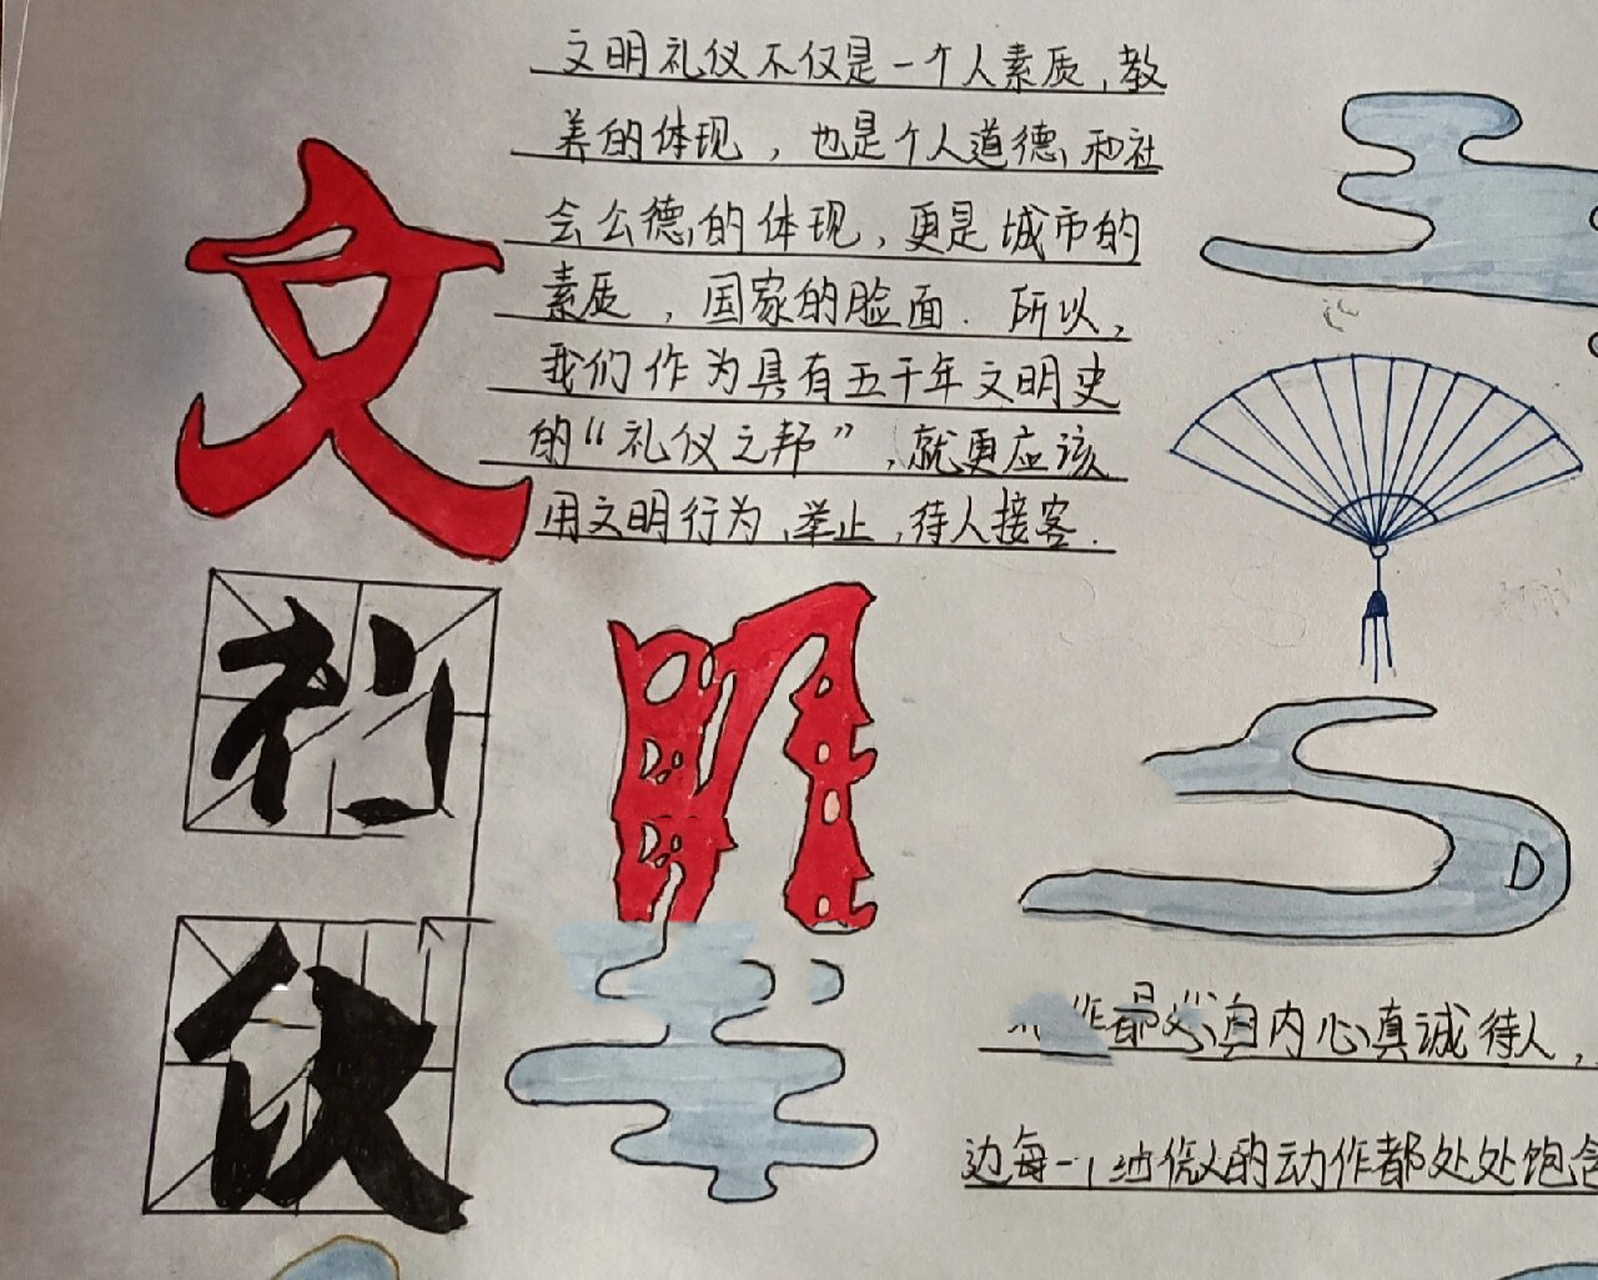 文明礼仪不仅是一个人素质,教
养的体现,也是个人道德、和社
会公德的体现,更是城市的
素质,国家的脸面.所以,
我们作为具有五千年文明史
的“礼仪之邦”,就更应该
用文明行为、举止,待人接客.
文
明
礼
仪
作都必自内心真诚待人,
边每一个的动作都处处饱含